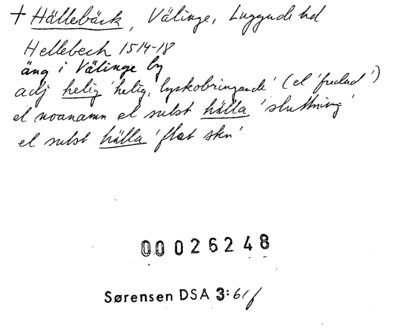 + Hällebäck, Välinge, Luggude hd
Hellebech 1514-18
äng i Välinge by
adj helig 'helig, lyckobringande' (el 'fredad')
el noanamn el subst hälla 'sluttning'
el subst hälla 'flat sten'
00026248
Sørensen DSA 3:61f